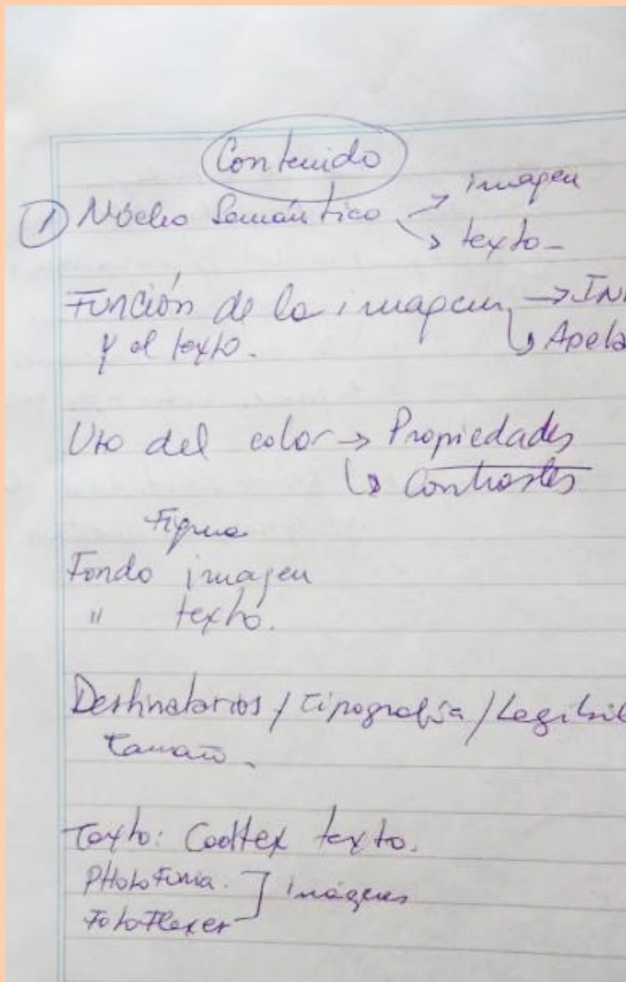 Contenido
① Núcleo Semántico → imagen
↳ texto
Función de la imagen → INF
y el texto. ↳ Apela
Uso del color → Propiedades
↳ Contrastes
Figura
Fondo imagen
" texto.
Destinatarios / Tipografía / Legibil
Tamaño.
Texto: Cooltex texto.
PHotoFunia. ] imágenes
FotoFlexer